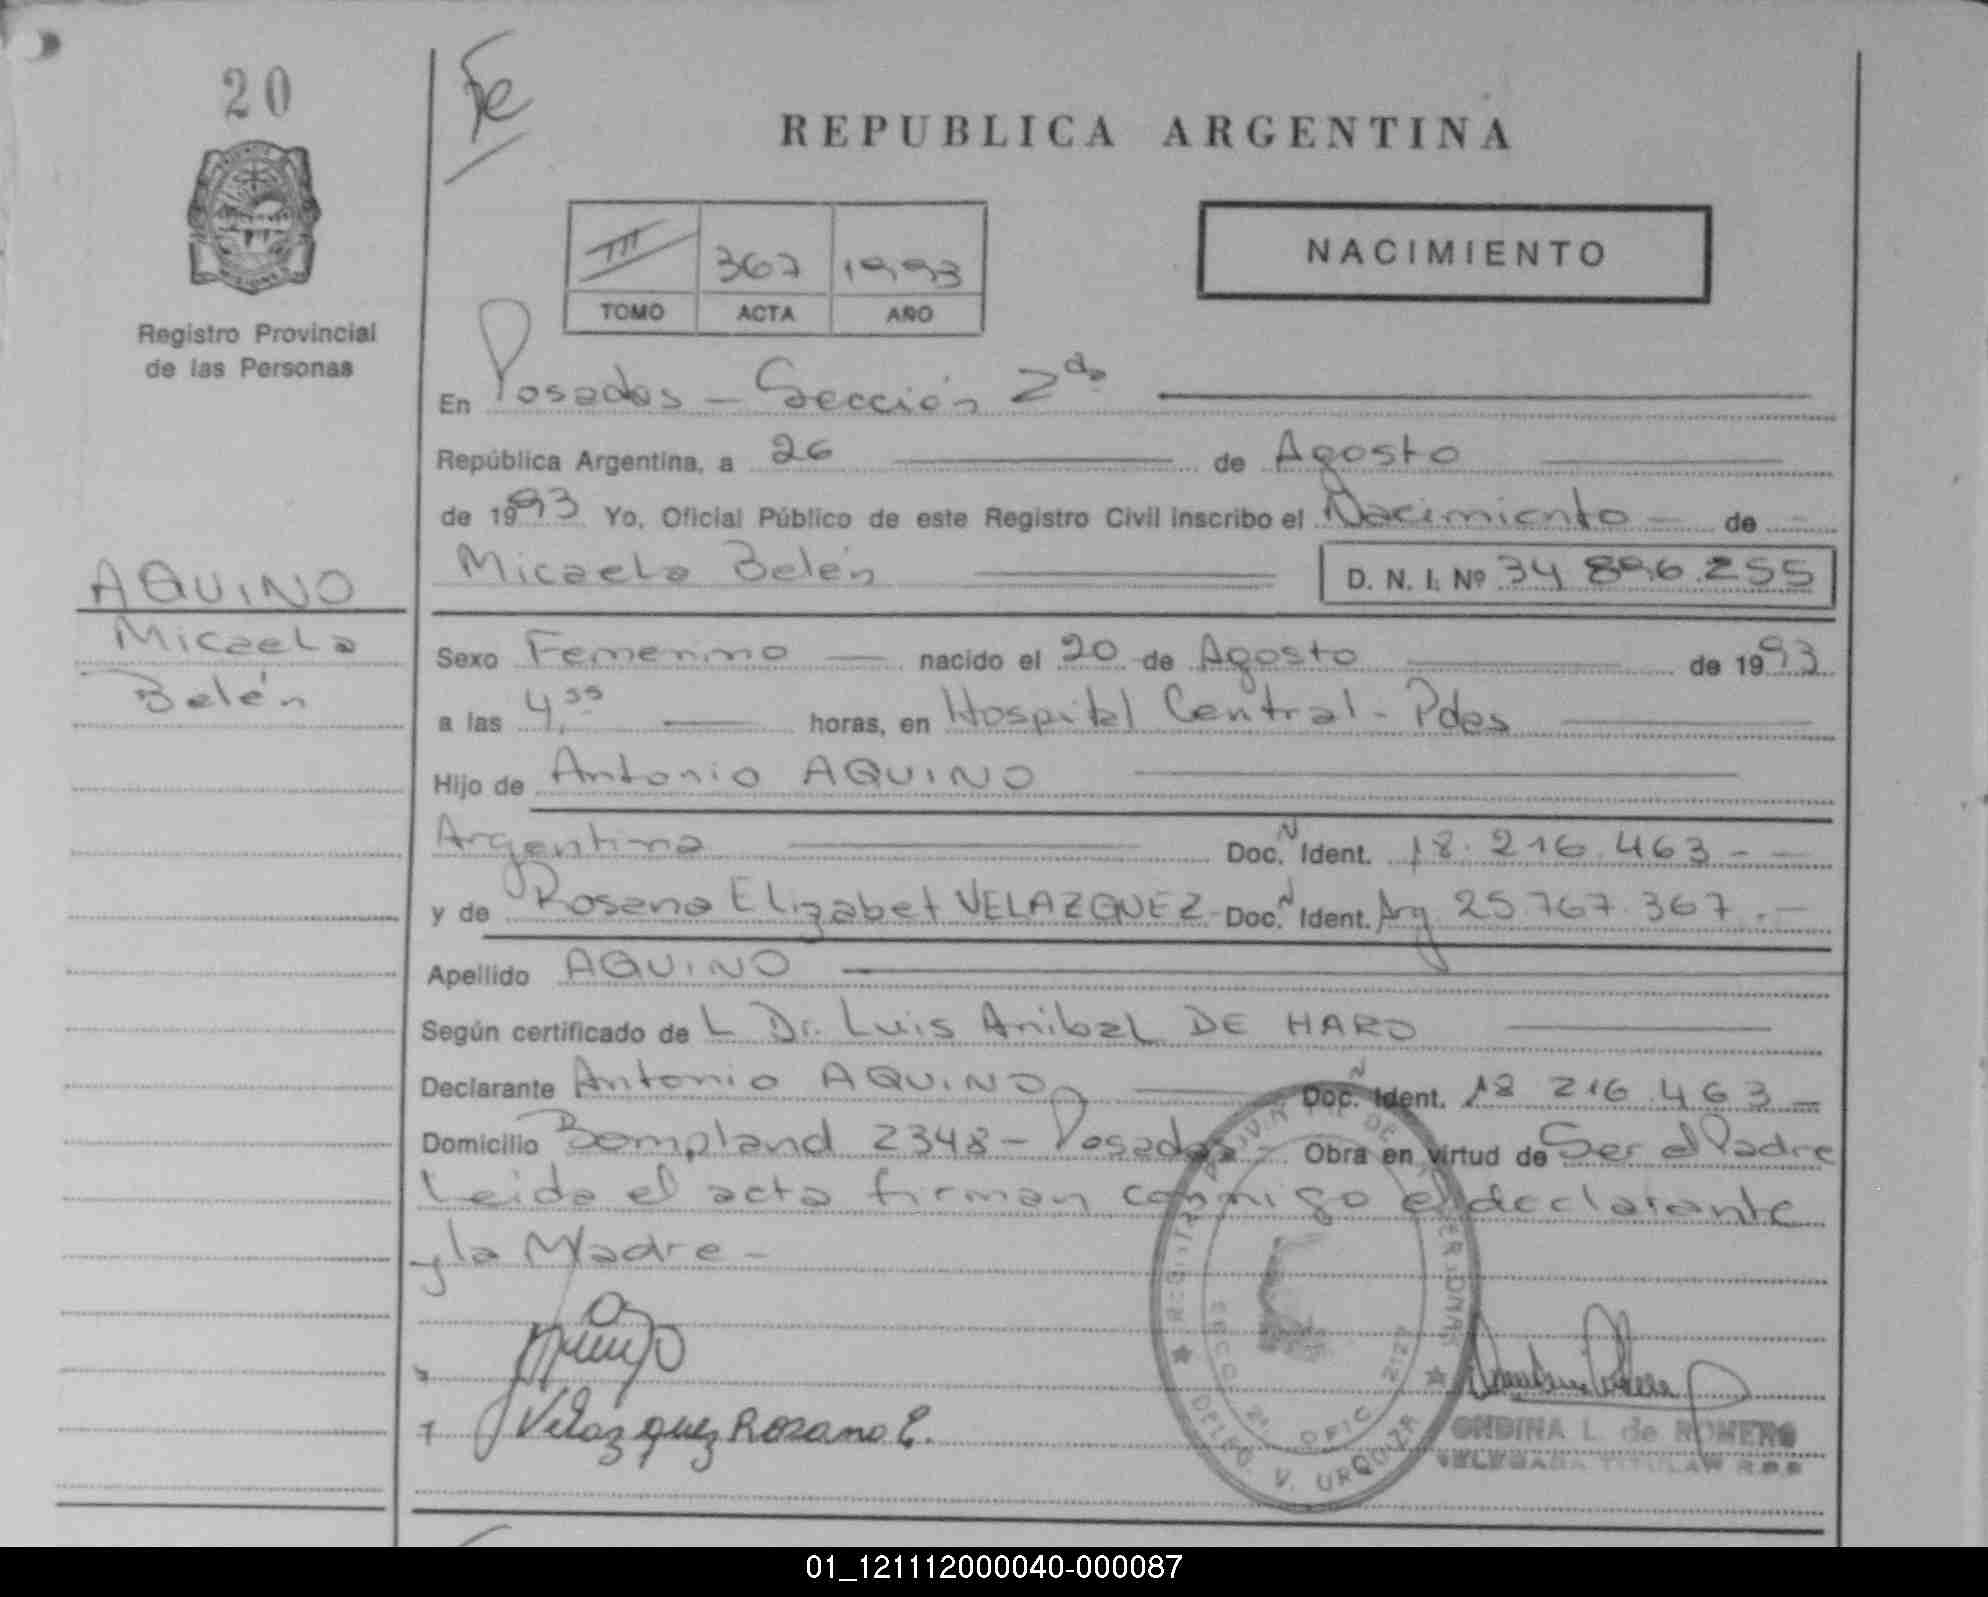 20
Fe
REPUBLICA ARGENTINA
III 367 1993
TOMO ACTA AÑO
NACIMIENTO
Registro Provincial
de las Personas
En Posadas - Sección 2da
República Argentina, a 26 de Agosto
de 1993 Yo, Oficial Público de este Registro Civil inscribo el Nacimiento - de
Micaela Belén D. N. I. Nº 34 896.255
AQUINO
Micaela
Belén
Sexo Femenino nacido el 20 de Agosto de 1993
a las 4,55 horas, en Hospital Central - Pdas
Hijo de Antonio AQUINO
Argentina Doc. N Ident. 18.216.463 - -
y de Rosana Elizabet VELAZQUEZ - Doc. N Ident. Arg 25.767.367.-
Apellido AQUINO
Según certificado de L Dr. Luis Anibal DE HARO
Declarante Antonio AQUINO Doc. N Ident. 18 216.463 -
Domicilio Bompland 2348 - Posadas - Obra en virtud de Ser el Padre
Leida el acta firman conmigo el declarante
y la Madre -
Velazquez Rosana E.
SECC 2ª OFIC 212
DELEG. V. URQUIZA
ONDINA L. de ROMERO
DELEGADA TITULAR R.P.P.
01_121112000040-000087